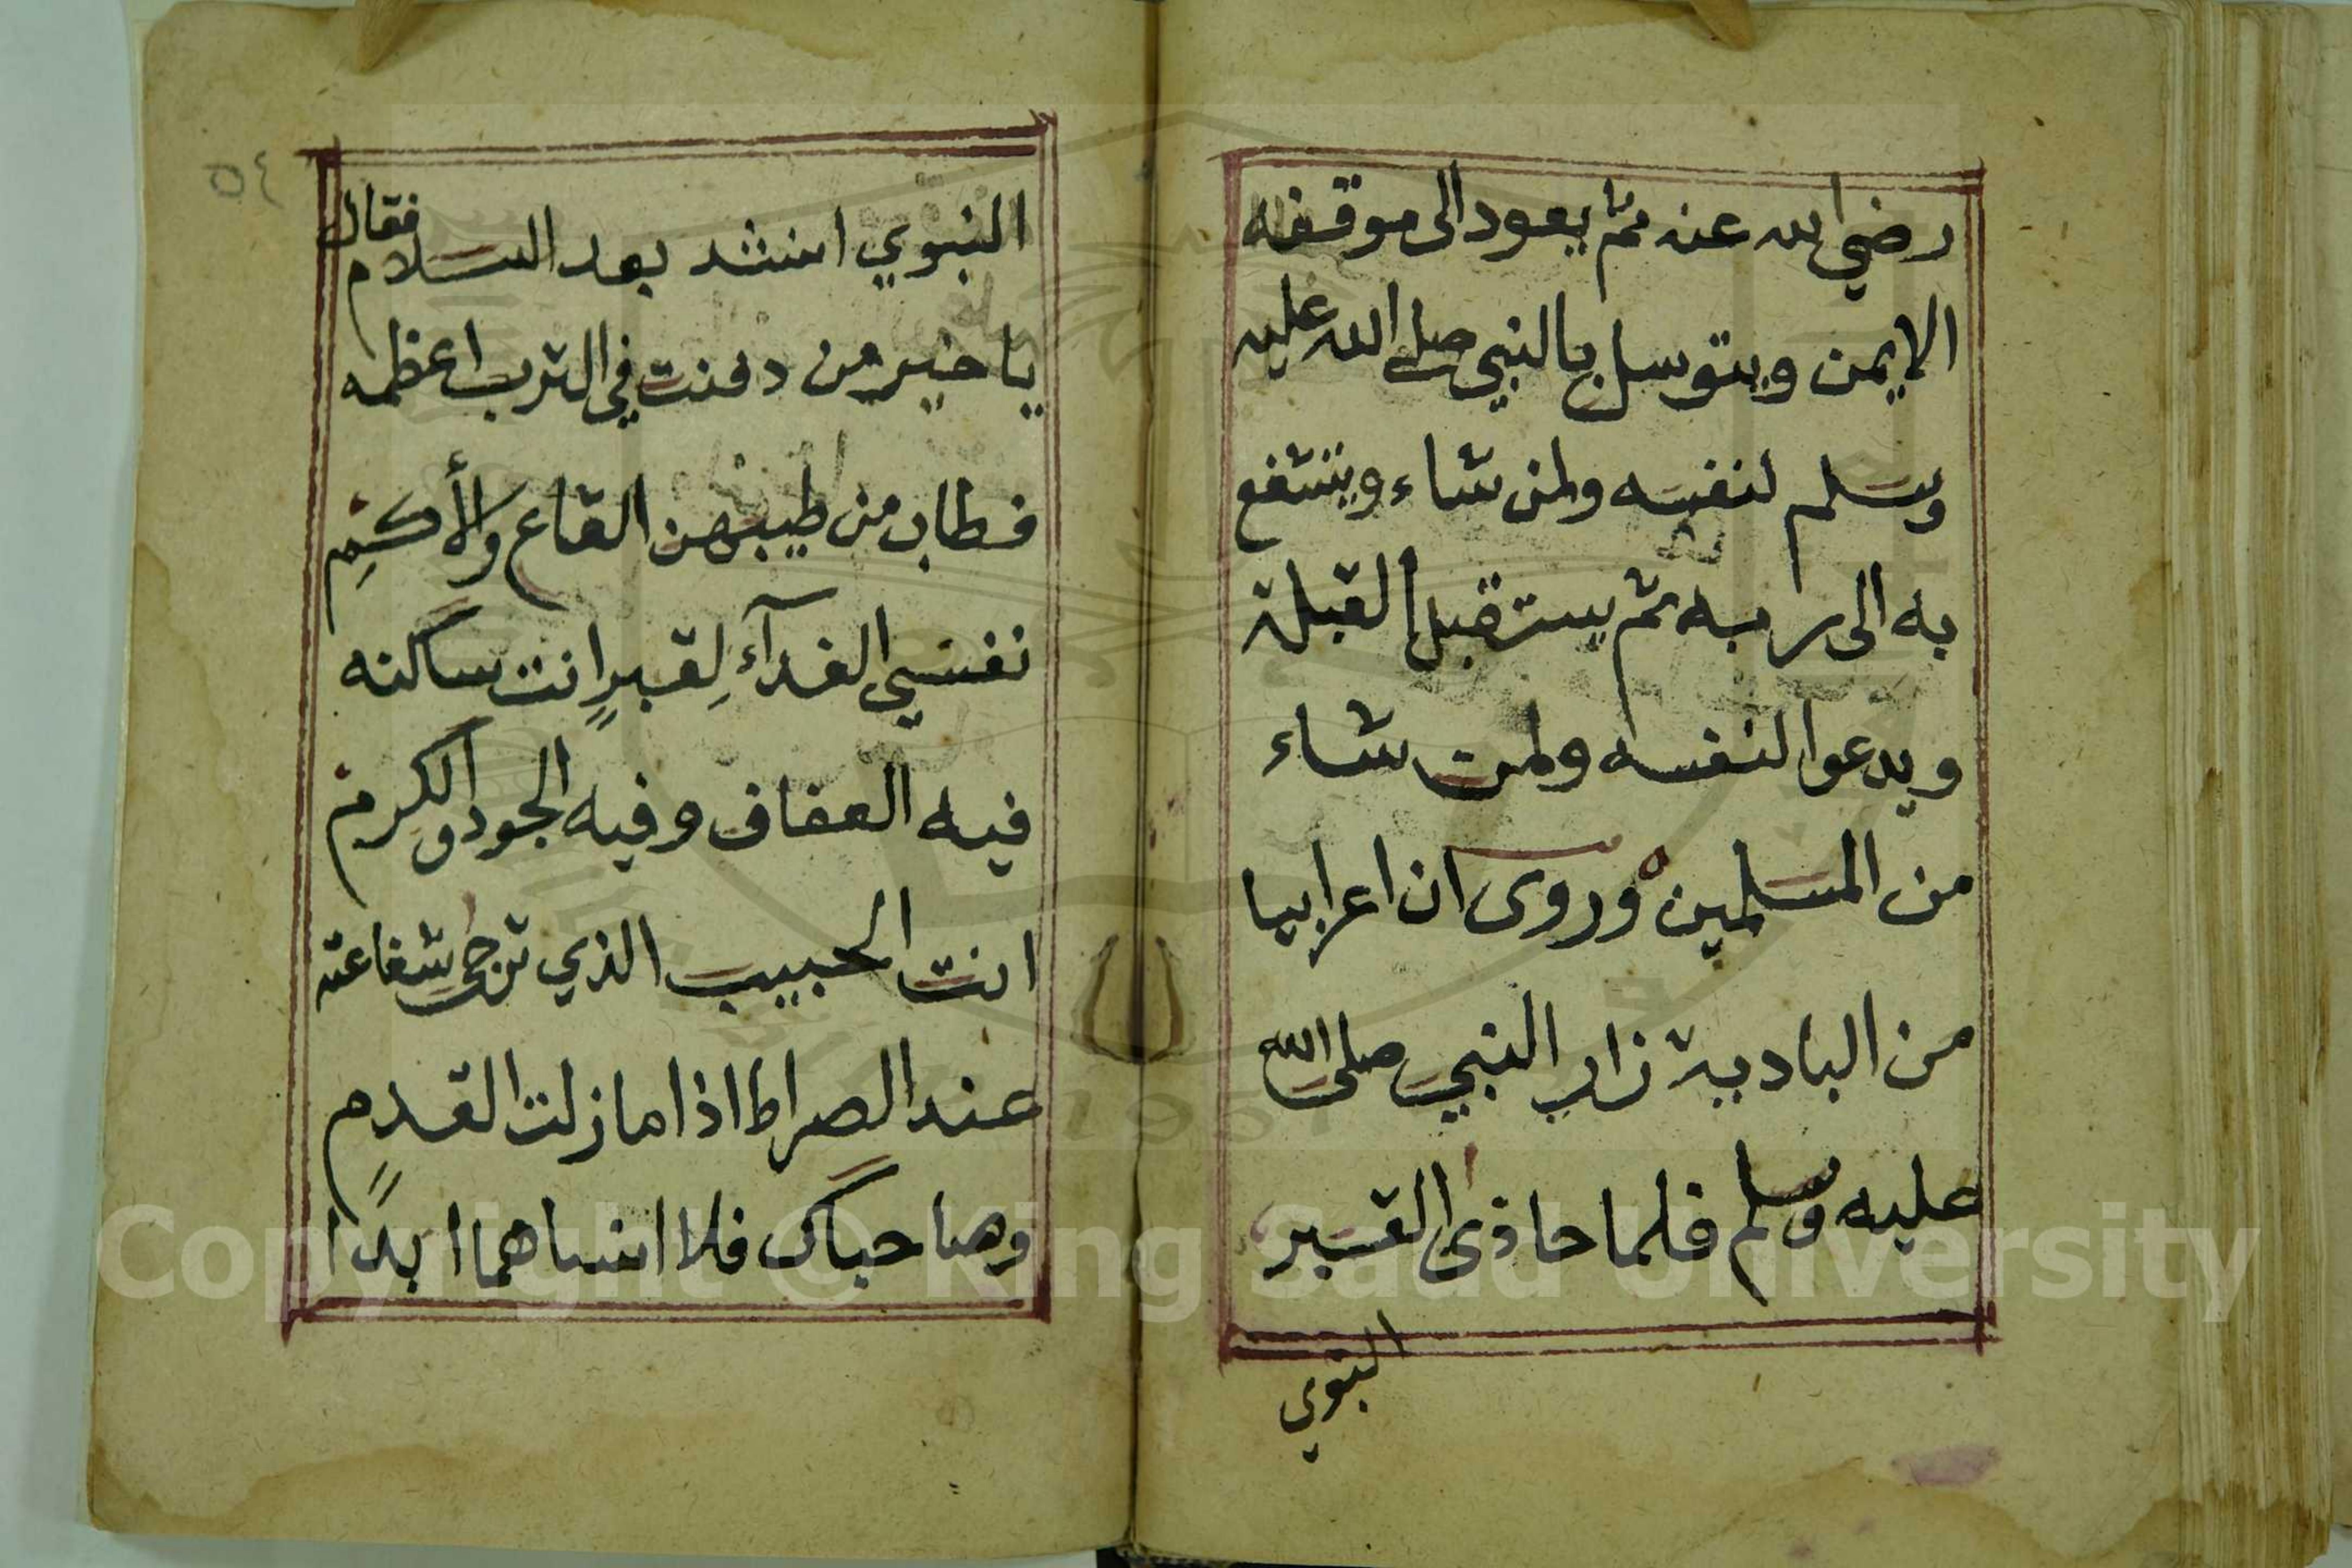 رضي الله عنه ثم يعود الى موقفه
الايمن ويتوسل بالنبي صلى الله عليه
وسلم لنفسه ولمن شاء ويتشفع
به الى ربه ثم يستقبل القبلة
ويدعوا لنفسه ولمن شاء
من المسلمين وروى ان اعرابيا
من البادية زار النبي صلى الله
عليه وسلم فلما حاذى القبر
النبوي
٥٤
النبوي انشد بعد السلام فقال
يا خير من دفنت في الترب اعظمه
فطاب من طيبهن القاع والأكمِ
نفسي الفدآء لِقبرٍ انت ساكنه
فيه العفاف وفيه الجود والكرم
انت الحبيب الذي ترجى شفاعته
عند الصراط اذا ما زلت القدمِ
وصاحباك فلا انساهما ابدًا
Copyright © King Saud University
1957